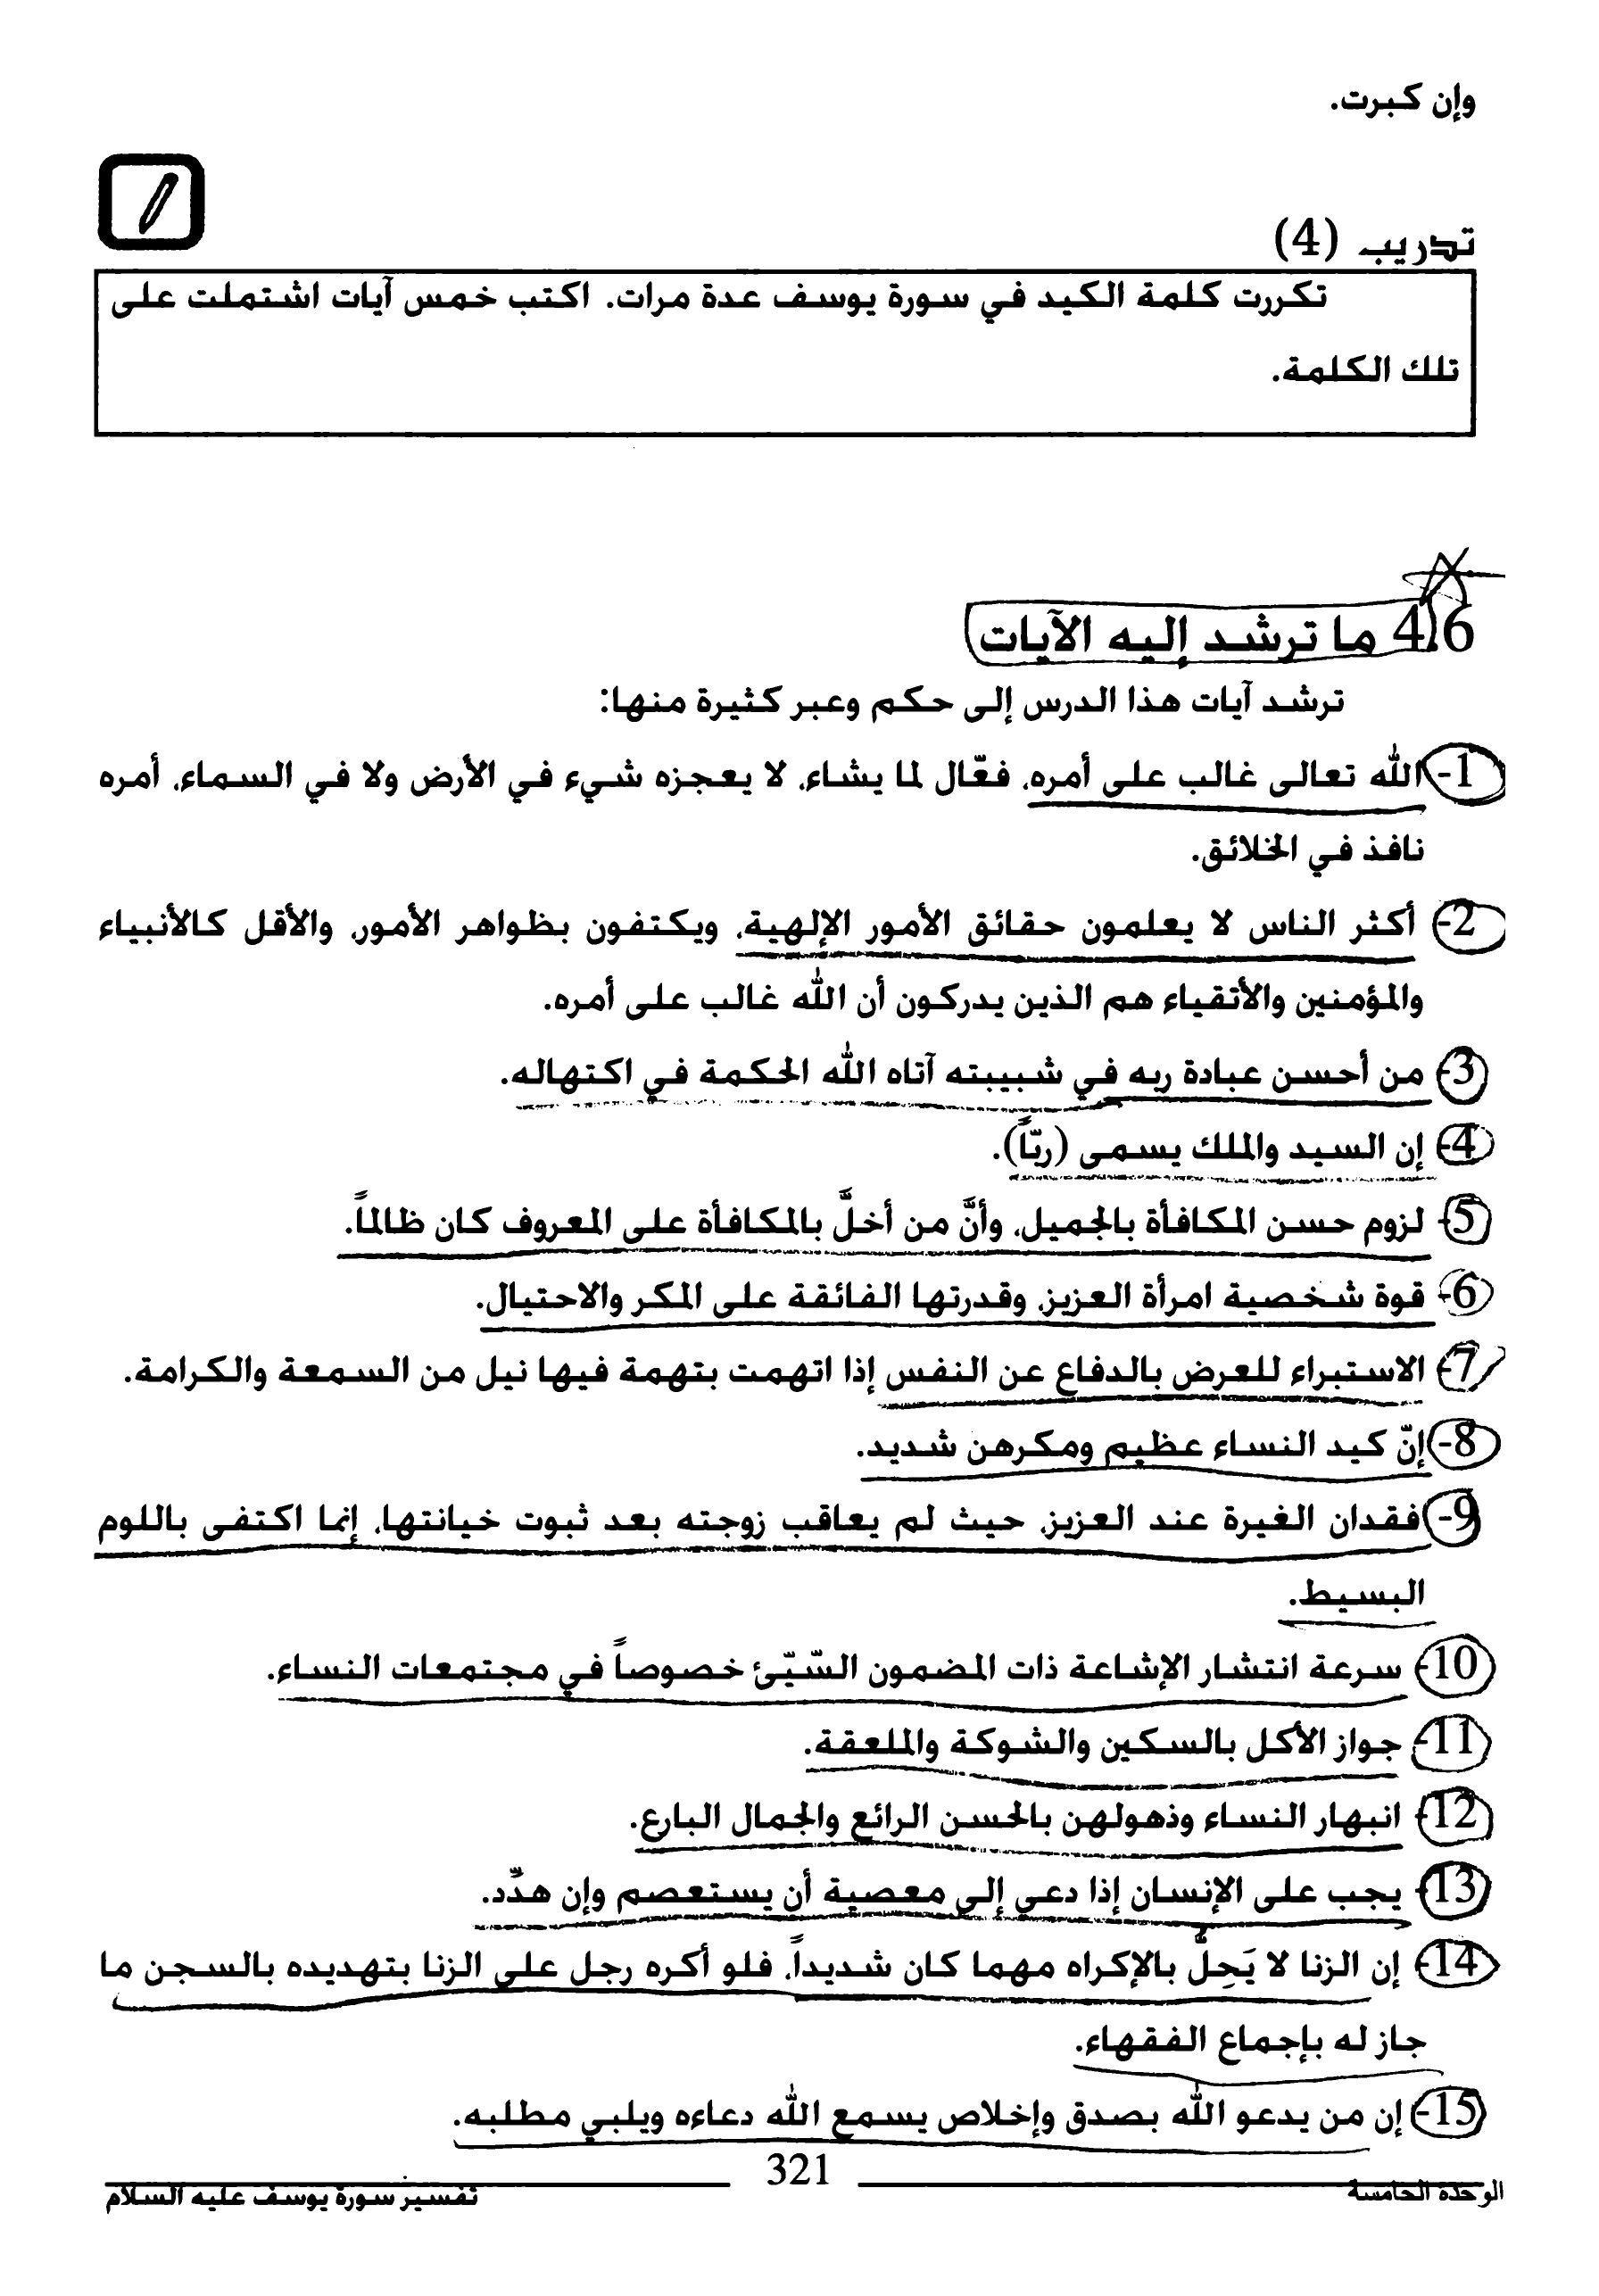 وإن كبرت.
تدريب (4)
تكررت كلمة الكيد في سورة يوسف عدة مرات. اكتب خمس آيات اشتملت على
تلك الكلمة.
4.6 ما ترشد إليه الآيات
ترشد آيات هذا الدرس إلى حكم وعبر كثيرة منها:
1- الله تعالى غالب على أمره، فعّال لما يشاء، لا يعجزه شيء في الأرض ولا في السماء، أمره
نافذ في الخلائق.
2- أكثر الناس لا يعلمون حقائق الأمور الإلهية، ويكتفون بظواهر الأمور، والأقل كالأنبياء
والمؤمنين والأتقياء هم الذين يدركون أن الله غالب على أمره.
3- من أحسن عبادة ربه في شبيبته آتاه الله الحكمة في اكتهاله.
4- إن السيد والملك يسمى (ربّاً).
5- لزوم حسن المكافأة بالجميل، وأنَّ من أخلَّ بالمكافأة على المعروف كان ظالماً.
6- قوة شخصية امرأة العزيز، وقدرتها الفائقة على المكر والاحتيال.
7- الاستبراء للعرض بالدفاع عن النفس إذا اتهمت بتهمة فيها نيل من السمعة والكرامة.
8- إنّ كيد النساء عظيم ومكرهن شديد.
9- فقدان الغيرة عند العزيز، حيث لم يعاقب زوجته بعد ثبوت خيانتها، إنما اكتفى باللوم
البسيط.
10- سرعة انتشار الإشاعة ذات المضمون السّيّئ خصوصاً في مجتمعات النساء.
11- جواز الأكل بالسكين والشوكة والملعقة.
12- انبهار النساء وذهولهن بالحسن الرائع والجمال البارع.
13- يجب على الإنسان إذا دعي إلى معصية أن يستعصم وإن هدّد.
14- إن الزنا لا يَحِلُّ بالإكراه مهما كان شديداً، فلو أكره رجل على الزنا بتهديده بالسجن ما
جاز له بإجماع الفقهاء.
15- إن من يدعو الله بصدق وإخلاص يسمع الله دعاءه ويلبي مطلبه.
الوحدة الخامسة 321 تفسير سورة يوسف عليه السلام